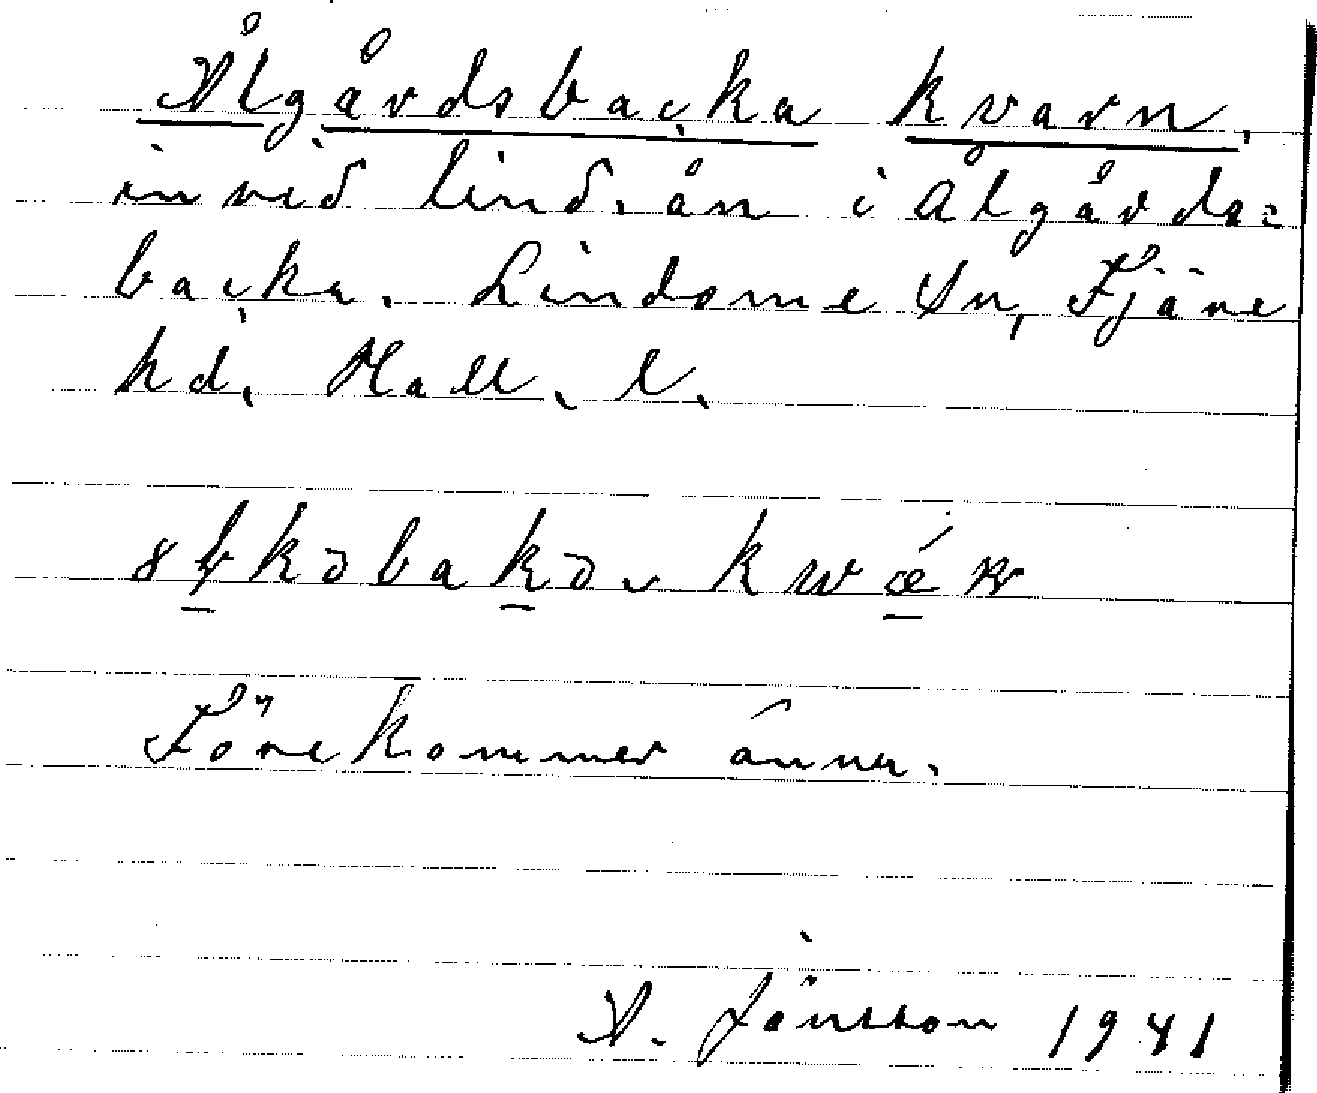 Ålgårdsbacka kvarn,
invid lind.ån i Ålgårds=
backa. Lindome Sn, Fjäre
hd. Hall. l.
kwǽrn
Förekommer ännu.
A. Jönsson 1941